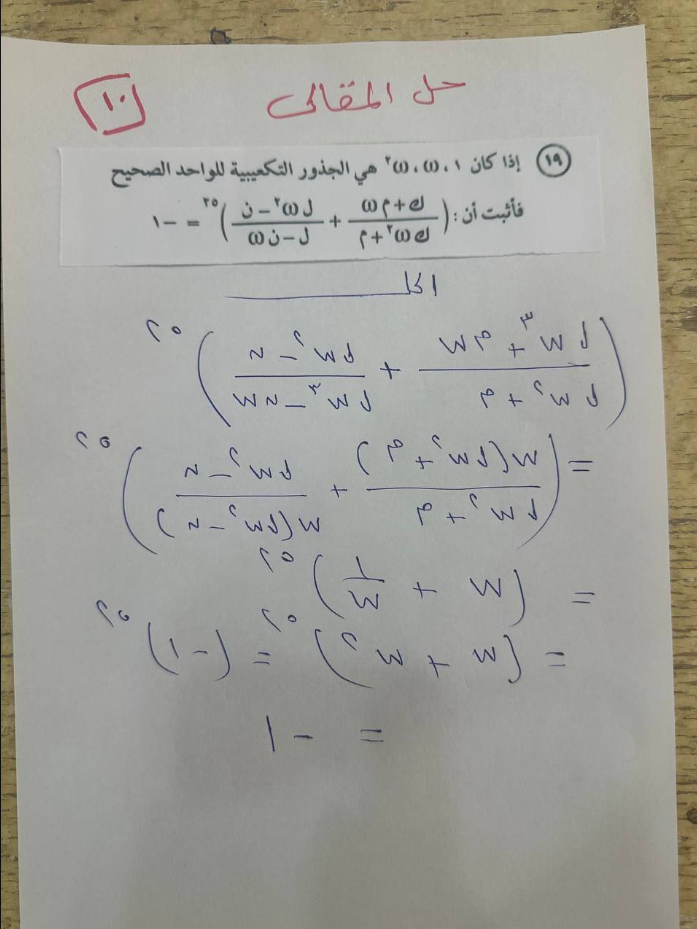 حل المقالى ١٠
١٩ إذا كان ١ ، ω ، ω² هي الجذور التكعيبية للواحد الصحيح
فأثبت أن : ((ك + م ω)/(ك ω² + م) + (ل ω² − ن)/(ل − ن ω))^٢٥ = −١
الحل
((ك ω³ + م ω)/(ك ω² + م) + (ل ω² − ن)/(ل ω³ − ن ω))^٢٥
= (ω(ك ω² + م)/(ك ω² + م) + (ل ω² − ن)/ω(ل ω² − ن))^٢٥
= (ω + ١/ω)^٢٥
= (ω + ω²)^٢٥ = (−١)^٢٥
= −١